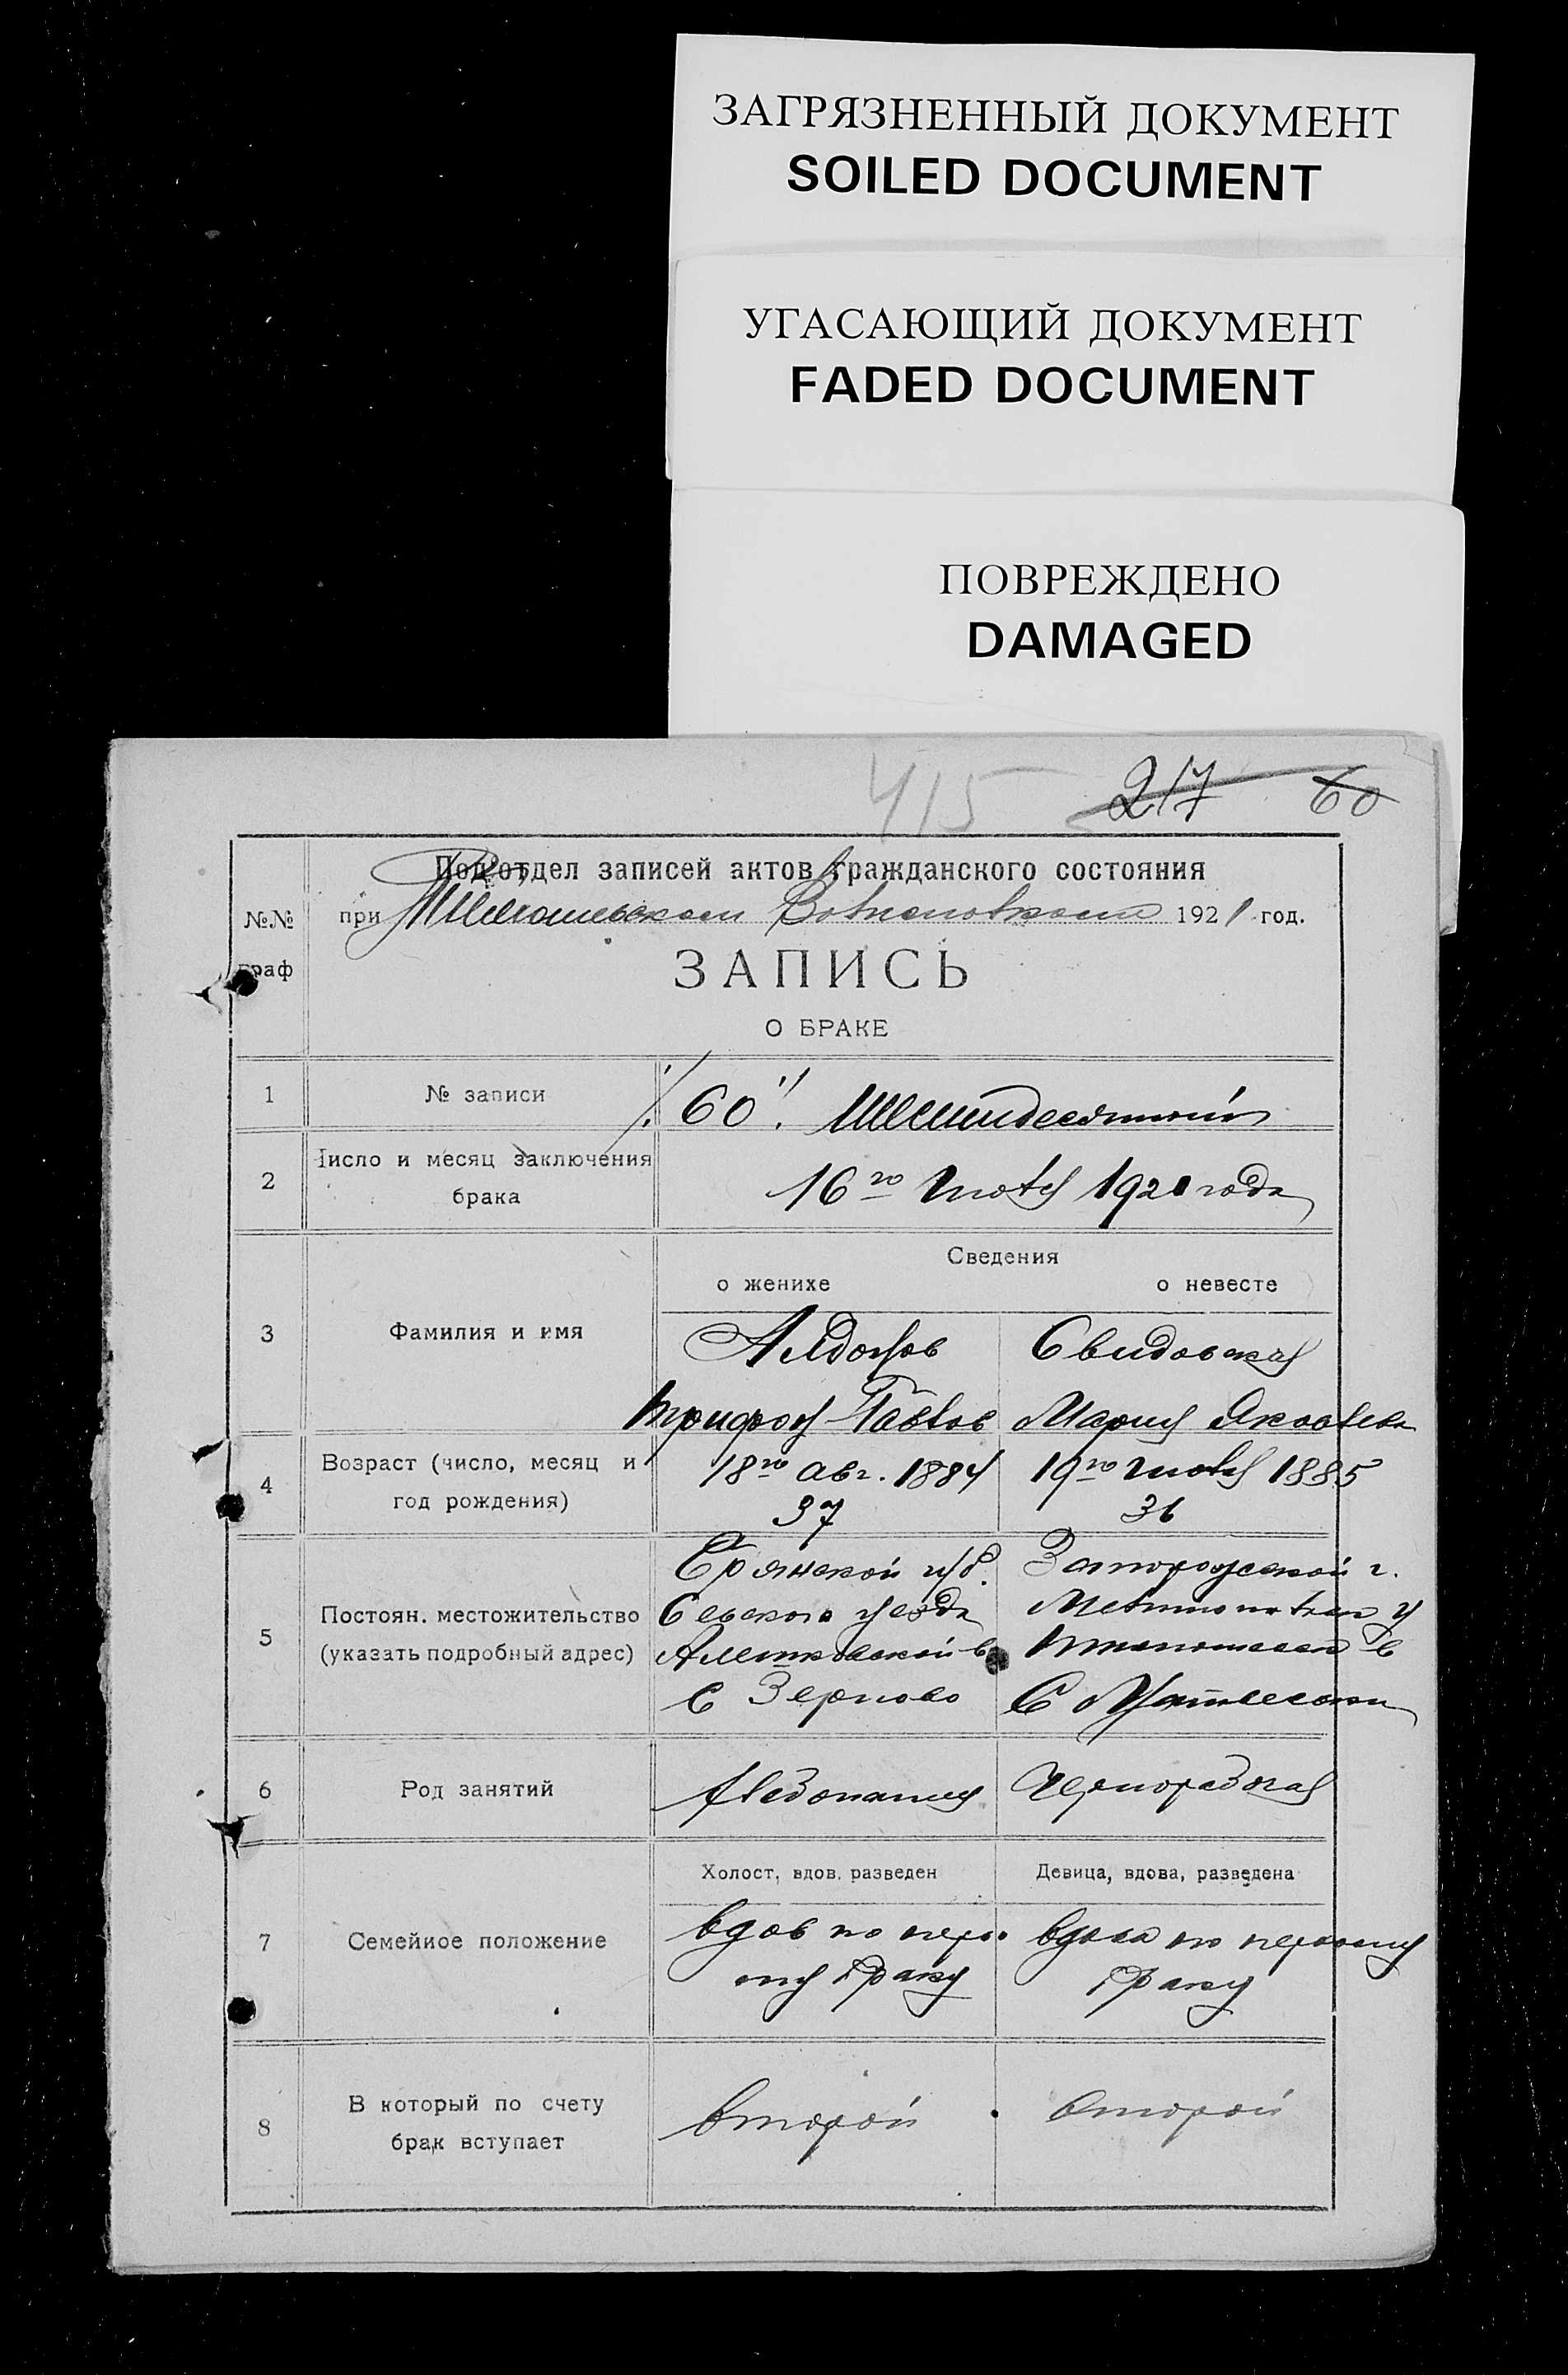 ЗАГРЯЗНЕННЫЙ ДОКУМЕНТ
SOILED DOCUMENT
УГАСАЮЩИЙ ДОКУМЕНТ
FADED DOCUMENT
ПОВРЕЖДЕНО
DAMAGED
415 217 60
Подотдел записей актов гражданского состояния
№№ при 1921 год.
граф
ЗАПИСЬ
О БРАКЕ
1 № записи "60" Шестидесятый
2 Число и месяц заключения
брака
16го Июля 1921 года
Сведения
о женихе о невесте
3 Фамилия и имя
Свидовская
Трифон Павлов Мария Яковлева
4 Возраст (число, месяц и
год рождения)
18го авг. 1884 19го Июля 1885
37 36
5 Постоян. местожительство
(указать подробный адрес)
Брянской губ. Запорожской г.
Севского уезда у
в
с Зерново С
6 Род занятий
Хлебопашец Чернорабочая
Холост, вдов. разведен Девица, вдова, разведена
7 Семейное положение
вдов по перво вдова по первому
му браку браку
8 В который по счету
брак вступает
второй второй